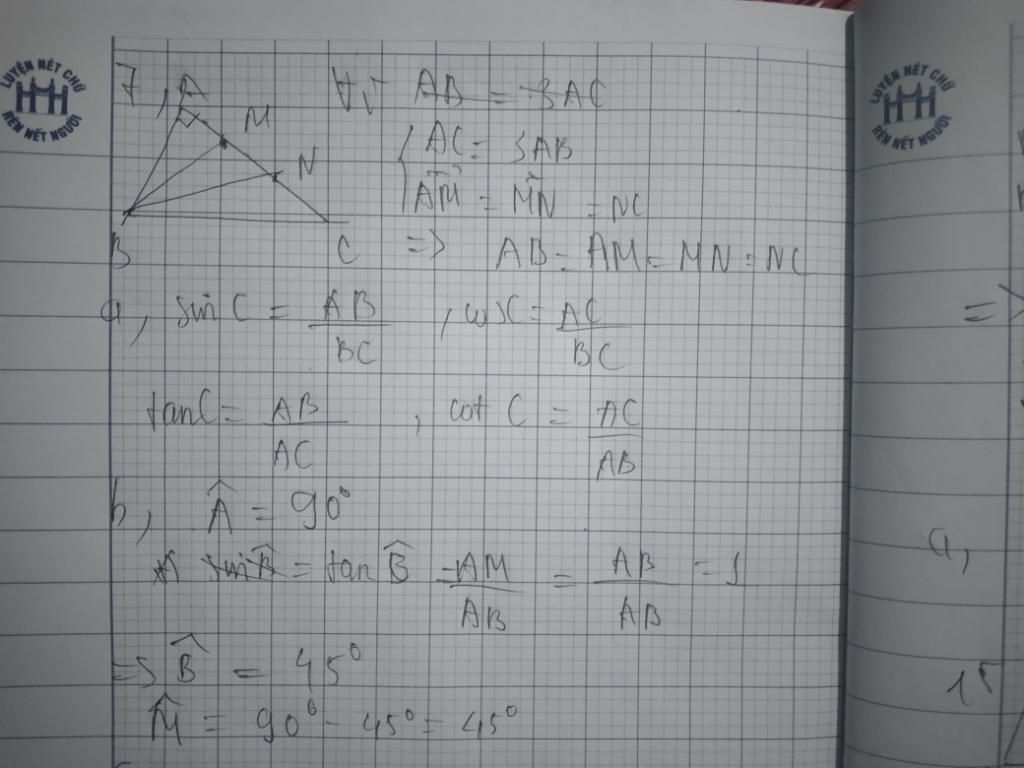 LUYỆN NÉT CHỮ
RÈN NẾT NGƯỜI
7, A
M
N
B
C
Vì AB = 3AC
AC = 3AB
AM = MN = NC
=> AB = AM = MN = NC
a, sin C = AB/BC , cos C = AC/BC
tan C = AB/AC , cot C = AC/AB
b, Â = 90°
sin B̂ = tan B̂ = AM/AB = AB/AB = 1
=> B̂ = 45°
M̂ = 90° - 45° = 45°
LUYỆN NÉT CHỮ
RÈN NẾT NGƯỜI
=>
a,